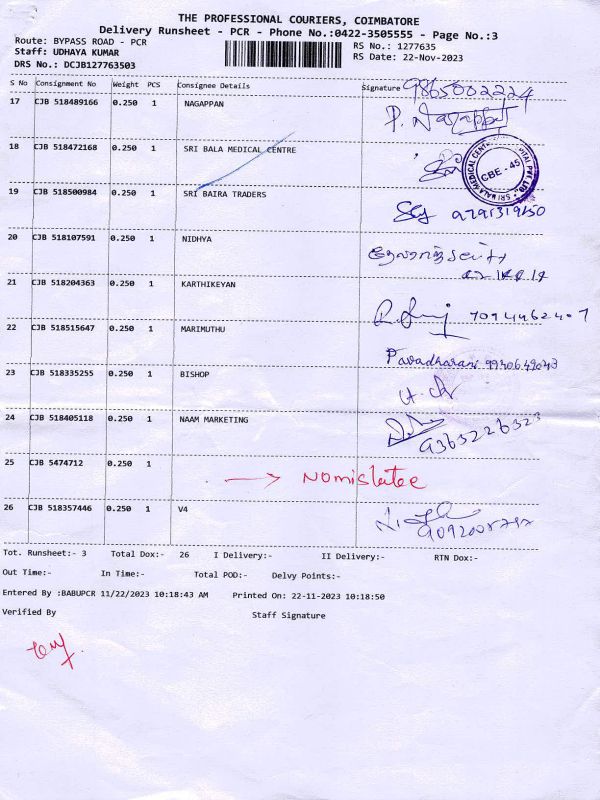 THE PROFESSIONAL COURIERS, COIMBATORE
Delivery Runsheet - PCR - Phone No.:0422-3505555 - Page No.:3
Route: BYPASS ROAD - PCR
RS No.: 1277635
Staff: UDHAYA KUMAR
RS Date: 22-Nov-2023
DRS No.: DCJB127763503
S No Consignment No Weight PCS Consignee Details Signature 9865002224
17 CJB 518489166 0.250 1 NAGAPPAN P. Nagappan
18 CJB 518472168 0.250 1 SRI BALA MEDICAL CENTRE
CBE - 45
19 CJB 518500984 0.250 1 SRI BAIRA TRADERS
20 CJB 518107591 0.250 1 NIDHYA
21 CJB 518204363 0.250 1 KARTHIKEYAN
22 CJB 518515647 0.250 1 MARIMUTHU
23 CJB 518335255 0.250 1 BISHOP
24 CJB 518405118 0.250 1 NAAM MARKETING
25 CJB 5474712 0.250 1
26 CJB 518357446 0.250 1 V4
Tot. Runsheet:- 3 Total Dox:- 26 I Delivery:- II Delivery:- RTN Dox:-
Out Time:- In Time:- Total POD:- Delvy Points:-
Entered By :BABUPCR 11/22/2023 10:18:43 AM Printed On: 22-11-2023 10:18:50
Verified By Staff Signature